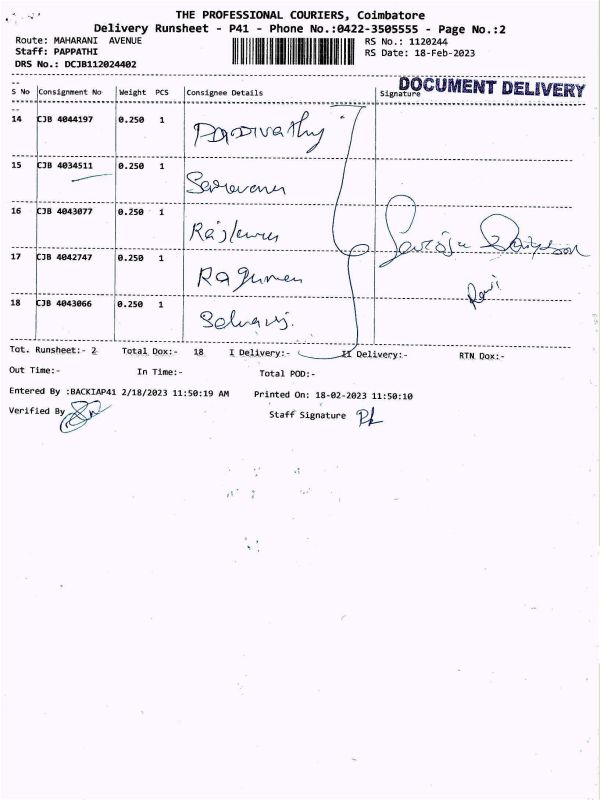 THE PROFESSIONAL COURIERS, Coimbatore
Delivery Runsheet - P41 - Phone No.:0422-3505555 - Page No.:2
Route: MAHARANI AVENUE
RS No.: 1120244
Staff: PAPPATHI
RS Date: 18-Feb-2023
DRS No.: DCJB112024402
DOCUMENT DELIVERY
S No Consignment No Weight PCS Consignee Details Signature
14 CJB 4044197 0.250 1
15 CJB 4034511 0.250 1 Saravanan
16 CJB 4043077 0.250 1
17 CJB 4042747 0.250 1
18 CJB 4043066 0.250 1 Selvaraj.
Ravi
Tot. Runsheet:- 2 Total Dox:- 18 I Delivery:- II Delivery:- RTN Dox:-
Out Time:- In Time:- Total POD:-
Entered By :BACKIAP41 2/18/2023 11:50:19 AM Printed On: 18-02-2023 11:50:10
Verified By Staff Signature